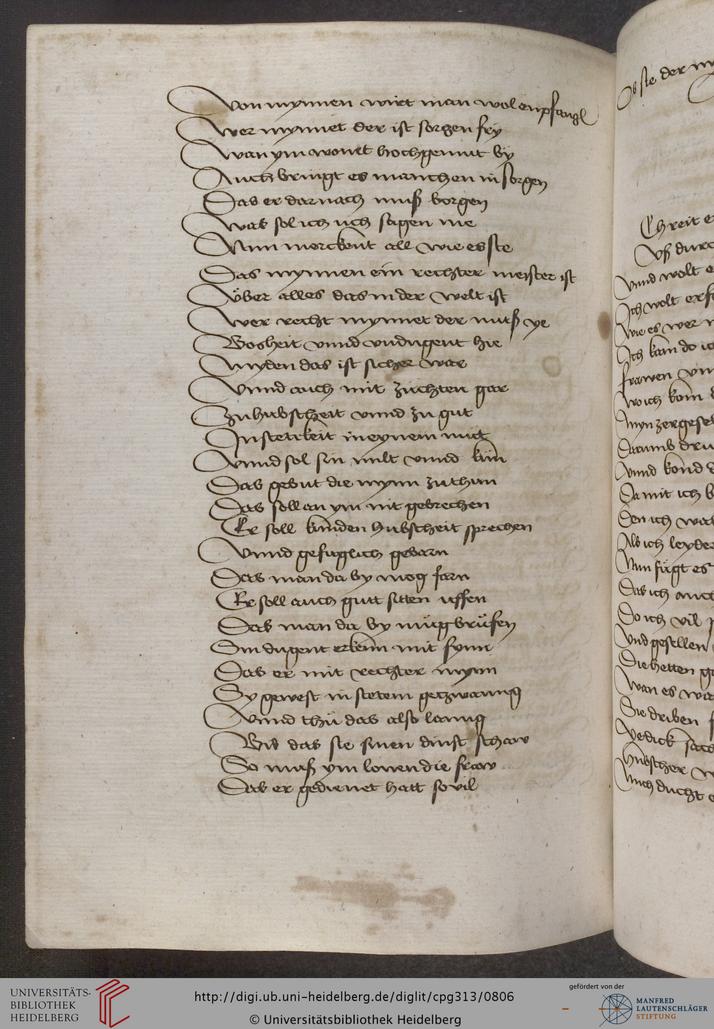 Von mynnen wirt man wol enpfangē
Wer mynnet der ist sorgen fry
Wan ym wont hochgemut by
Auch bringt es manchen in sorgen
Das er darnach muß borgen
Was sol ich uch sagen me
Nun merckent all wie es ste
Das mynnen ein rechter meister ist
Vber alles das in der welt ist
Wer recht mynnet der muß ye
Bosheit vnnd vndugent hie
Myden das ist sicher war
Vnnd auch mit zuchten gar
Zu hubscheit vnnd zu gut
In sterckeit in eynem mut
Vnnd sol sin milt vnnd kün
Das gebut die mynn zu thun
Das soll an ym nit gebrechen
Er soll kunden hubscheit sprechen
Vnnd gefuglich gebarn
Das man da by mog farn
Er soll auch gutt sitten uffen
Das man da by mug brüfen
Sin dugent erkenn mit synn
Das er mit rechter mynn
Sy gewest in stetem getzwanng
Vnnd thü das also lanng
Bis das sie sinen dinst schaw
So muß ym lonen die fraw
Das er gedienet hatt so vil
Ob sie der
Ich reit
Vß durc
Vnnd wolt e
Ich wolt erf
Wie es wer
Ich kam do ic
frawen vn
wo ich kom
Myn zergesel
Darumb dru
Vnnd kond
Da mit ich b
Den ich wa
Als ich leyde
Nun fügt es
Das ich
Do ich vil
Vnd gesellen
Die hetten g
Wan es wa
Sie driben
Hubscher
Mich ducht e
UNIVERSITÄTS-
BIBLIOTHEK
HEIDELBERG
http://digi.ub.uni-heidelberg.de/diglit/cpg313/0806
© Universitätsbibliothek Heidelberg
gefördert von der
MANFRED
LAUTENSCHLÄGER
STIFTUNG